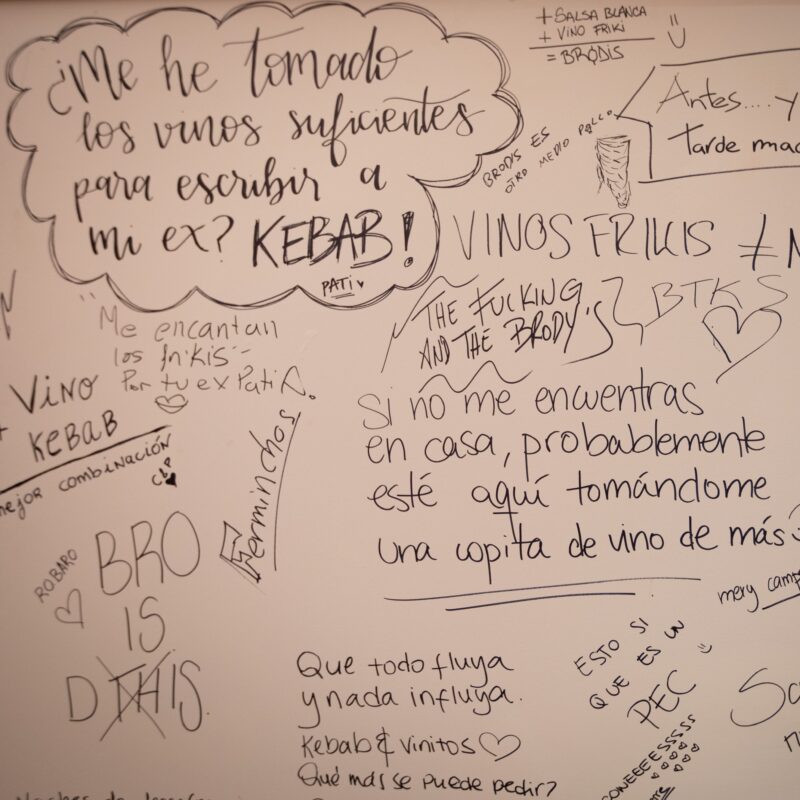 ¿Me he tomado
los vinos suficientes
para escribir a
mi ex? KEBAB!
PATI
+ SALSA BLANCA
+ VINO FRIKI
= BRODIS
BRODIS ES
OTRO MEDIO
Antes.... y
Tarde
VINOS FRIKIS ≠
THE FUCKING
AND THE BRODY'S
BTKS
"Me encantan
los frikis"
Por tu ex Pati
+ VINO
KEBAB
mejor combinación
Herminchos
si no me encuentras
en casa, probablemente
esté aquí tomándome
una copita de vino de más
mery
ROBARO
BRO
IS
D THIS.
Que todo fluya
y nada influya.
Kebab & vinitos
Qué más se puede pedir?
ESTO SI
QUE ES UN
PEC